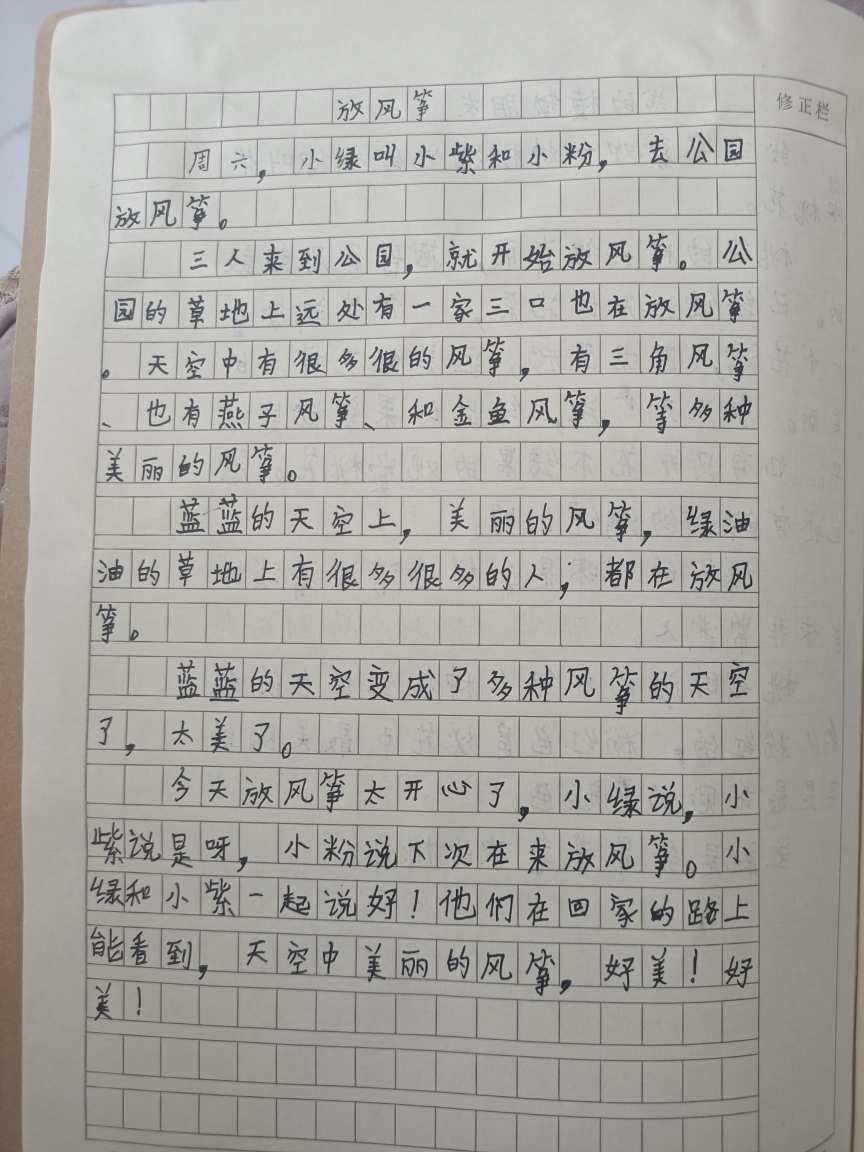 放风筝
修正栏
周六，小绿叫小紫和小粉，去公园
放风筝。
三人来到公园，就开始放风筝。公
园的草地上远处有一家三口也在放风筝
。天空中有很多很的风筝，有三角风筝
、也有燕子风筝、和金鱼风筝，等多种
美丽的风筝。
蓝蓝的天空上，美丽的风筝，绿油
油的草地上有很多很多的人，都在放风
筝。
蓝蓝的天空变成了多种风筝的天空
了，太美了。
今天放风筝太开心了，小绿说，小
紫说是呀，小粉说下次在来放风筝。小
绿和小紫一起说好！他们在回家的路上
能看到，天空中美丽的风筝，好美！好
美！